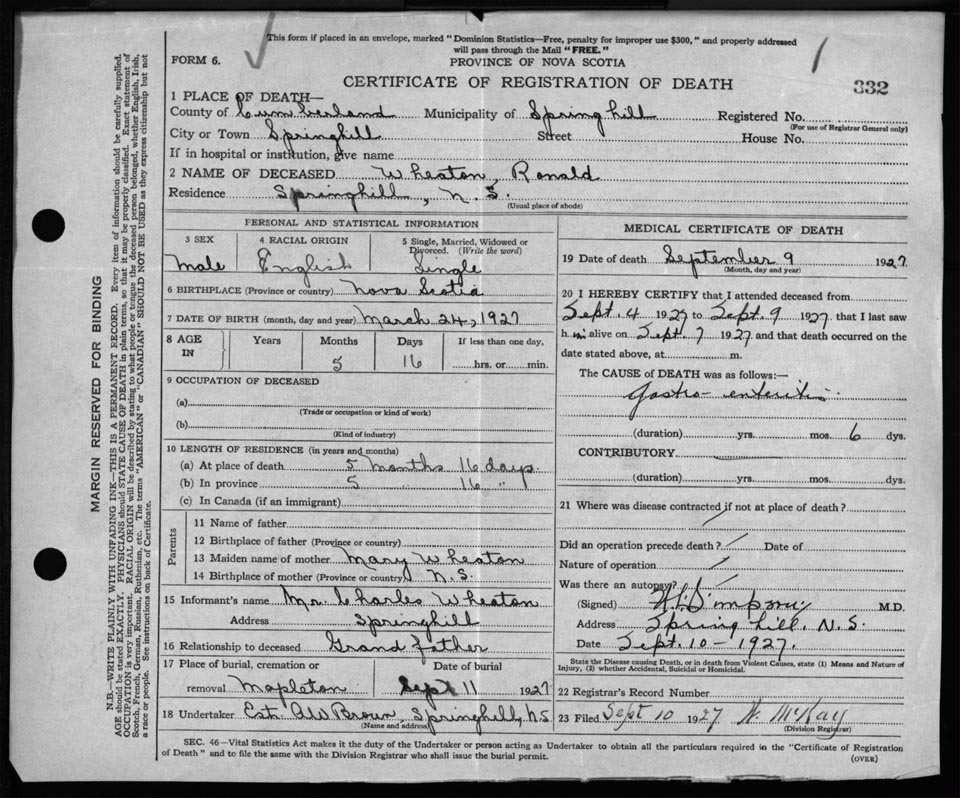 This form if placed in an envelope, marked "Dominion Statistics—Free, penalty for improper use $300," and properly addressed
will pass through the Mail "FREE."
FORM 6.
PROVINCE OF NOVA SCOTIA
CERTIFICATE OF REGISTRATION OF DEATH
332
1 PLACE OF DEATH—
County of Cumberland Municipality of Springhill Registered No.
(For use of Registrar General only)
City or Town Springhill Street House No.
If in hospital or institution, give name
2 NAME OF DECEASED Wheaton, Ronald
Residence Springhill, N.S.
(Usual place of abode)
PERSONAL AND STATISTICAL INFORMATION
3 SEX 4 RACIAL ORIGIN 5 Single, Married, Widowed or
Divorced. (Write the word)
Male English Single
6 BIRTHPLACE (Province or country) Nova Scotia
7 DATE OF BIRTH (month, day and year) March 24, 1927
8 AGE IN Years Months Days If less than one day,
5 16 hrs. or min.
9 OCCUPATION OF DECEASED
(a)
(Trade or occupation or kind of work)
(b)
(Kind of industry)
10 LENGTH OF RESIDENCE (in years and months)
(a) At place of death 5 months 16 days
(b) In province 5 16 "
(c) In Canada (if an immigrant)
Parents
11 Name of father
12 Birthplace of father (Province or country)
13 Maiden name of mother Mary Wheaton
14 Birthplace of mother (Province or country) N.S.
15 Informant's name Mr. Charles Wheaton
Address Springhill
16 Relationship to deceased Grand father
17 Place of burial, cremation or Date of burial
removal Mapleton Sept 11 1927
18 Undertaker Est. AW Brown, Springhill, N.S.
(Name and address)
MEDICAL CERTIFICATE OF DEATH
19 Date of death September 9 1927
(Month, day and year)
20 I HEREBY CERTIFY that I attended deceased from
Sept. 4 1927 to Sept. 9 1927 that I last saw
h im alive on Sept. 7 1927 and that death occurred on the
date stated above, at m.
The CAUSE of DEATH was as follows:—
Gastro-enteritis
(duration) yrs. mos. 6 dys.
CONTRIBUTORY
(duration) yrs. mos. dys.
21 Where was disease contracted if not at place of death?
Did an operation precede death? Date of
Nature of operation
Was there an autopsy?
(Signed) M.D.
Address Springhill, N.S.
Date Sept. 10 - 1927.
State the Disease causing Death, or in death from Violent Causes, state (1) Means and Nature of
Injury, (2) whether Accidental, Suicidal or Homicidal.
22 Registrar's Record Number
23 Filed Sept 10 1927 W. McKay
(Division Registrar)
SEC. 46—Vital Statistics Act makes it the duty of the Undertaker or person acting as Undertaker to obtain all the particulars required in the "Certificate of Registration
of Death" and to file the same with the Division Registrar who shall issue the burial permit.
(OVER)
MARGIN RESERVED FOR BINDING
N.B.—WRITE PLAINLY WITH UNFADING INK—THIS IS A PERMANENT RECORD. Every item of information should be carefully supplied.
AGE should be stated EXACTLY. PHYSICIANS should STATE CAUSE OF DEATH in plain terms, so that it may be properly classified. Exact statement of
OCCUPATION is very important. RACIAL ORIGIN will be described by stating to what people or tongue the deceased person belonged, whether English, Irish,
Scotch, French, German, Russian, Ruthenian, etc. The terms "AMERICAN" or "CANADIAN" SHOULD NOT BE USED as they express citizenship but not
a race or people. See instructions on back of Certificate.